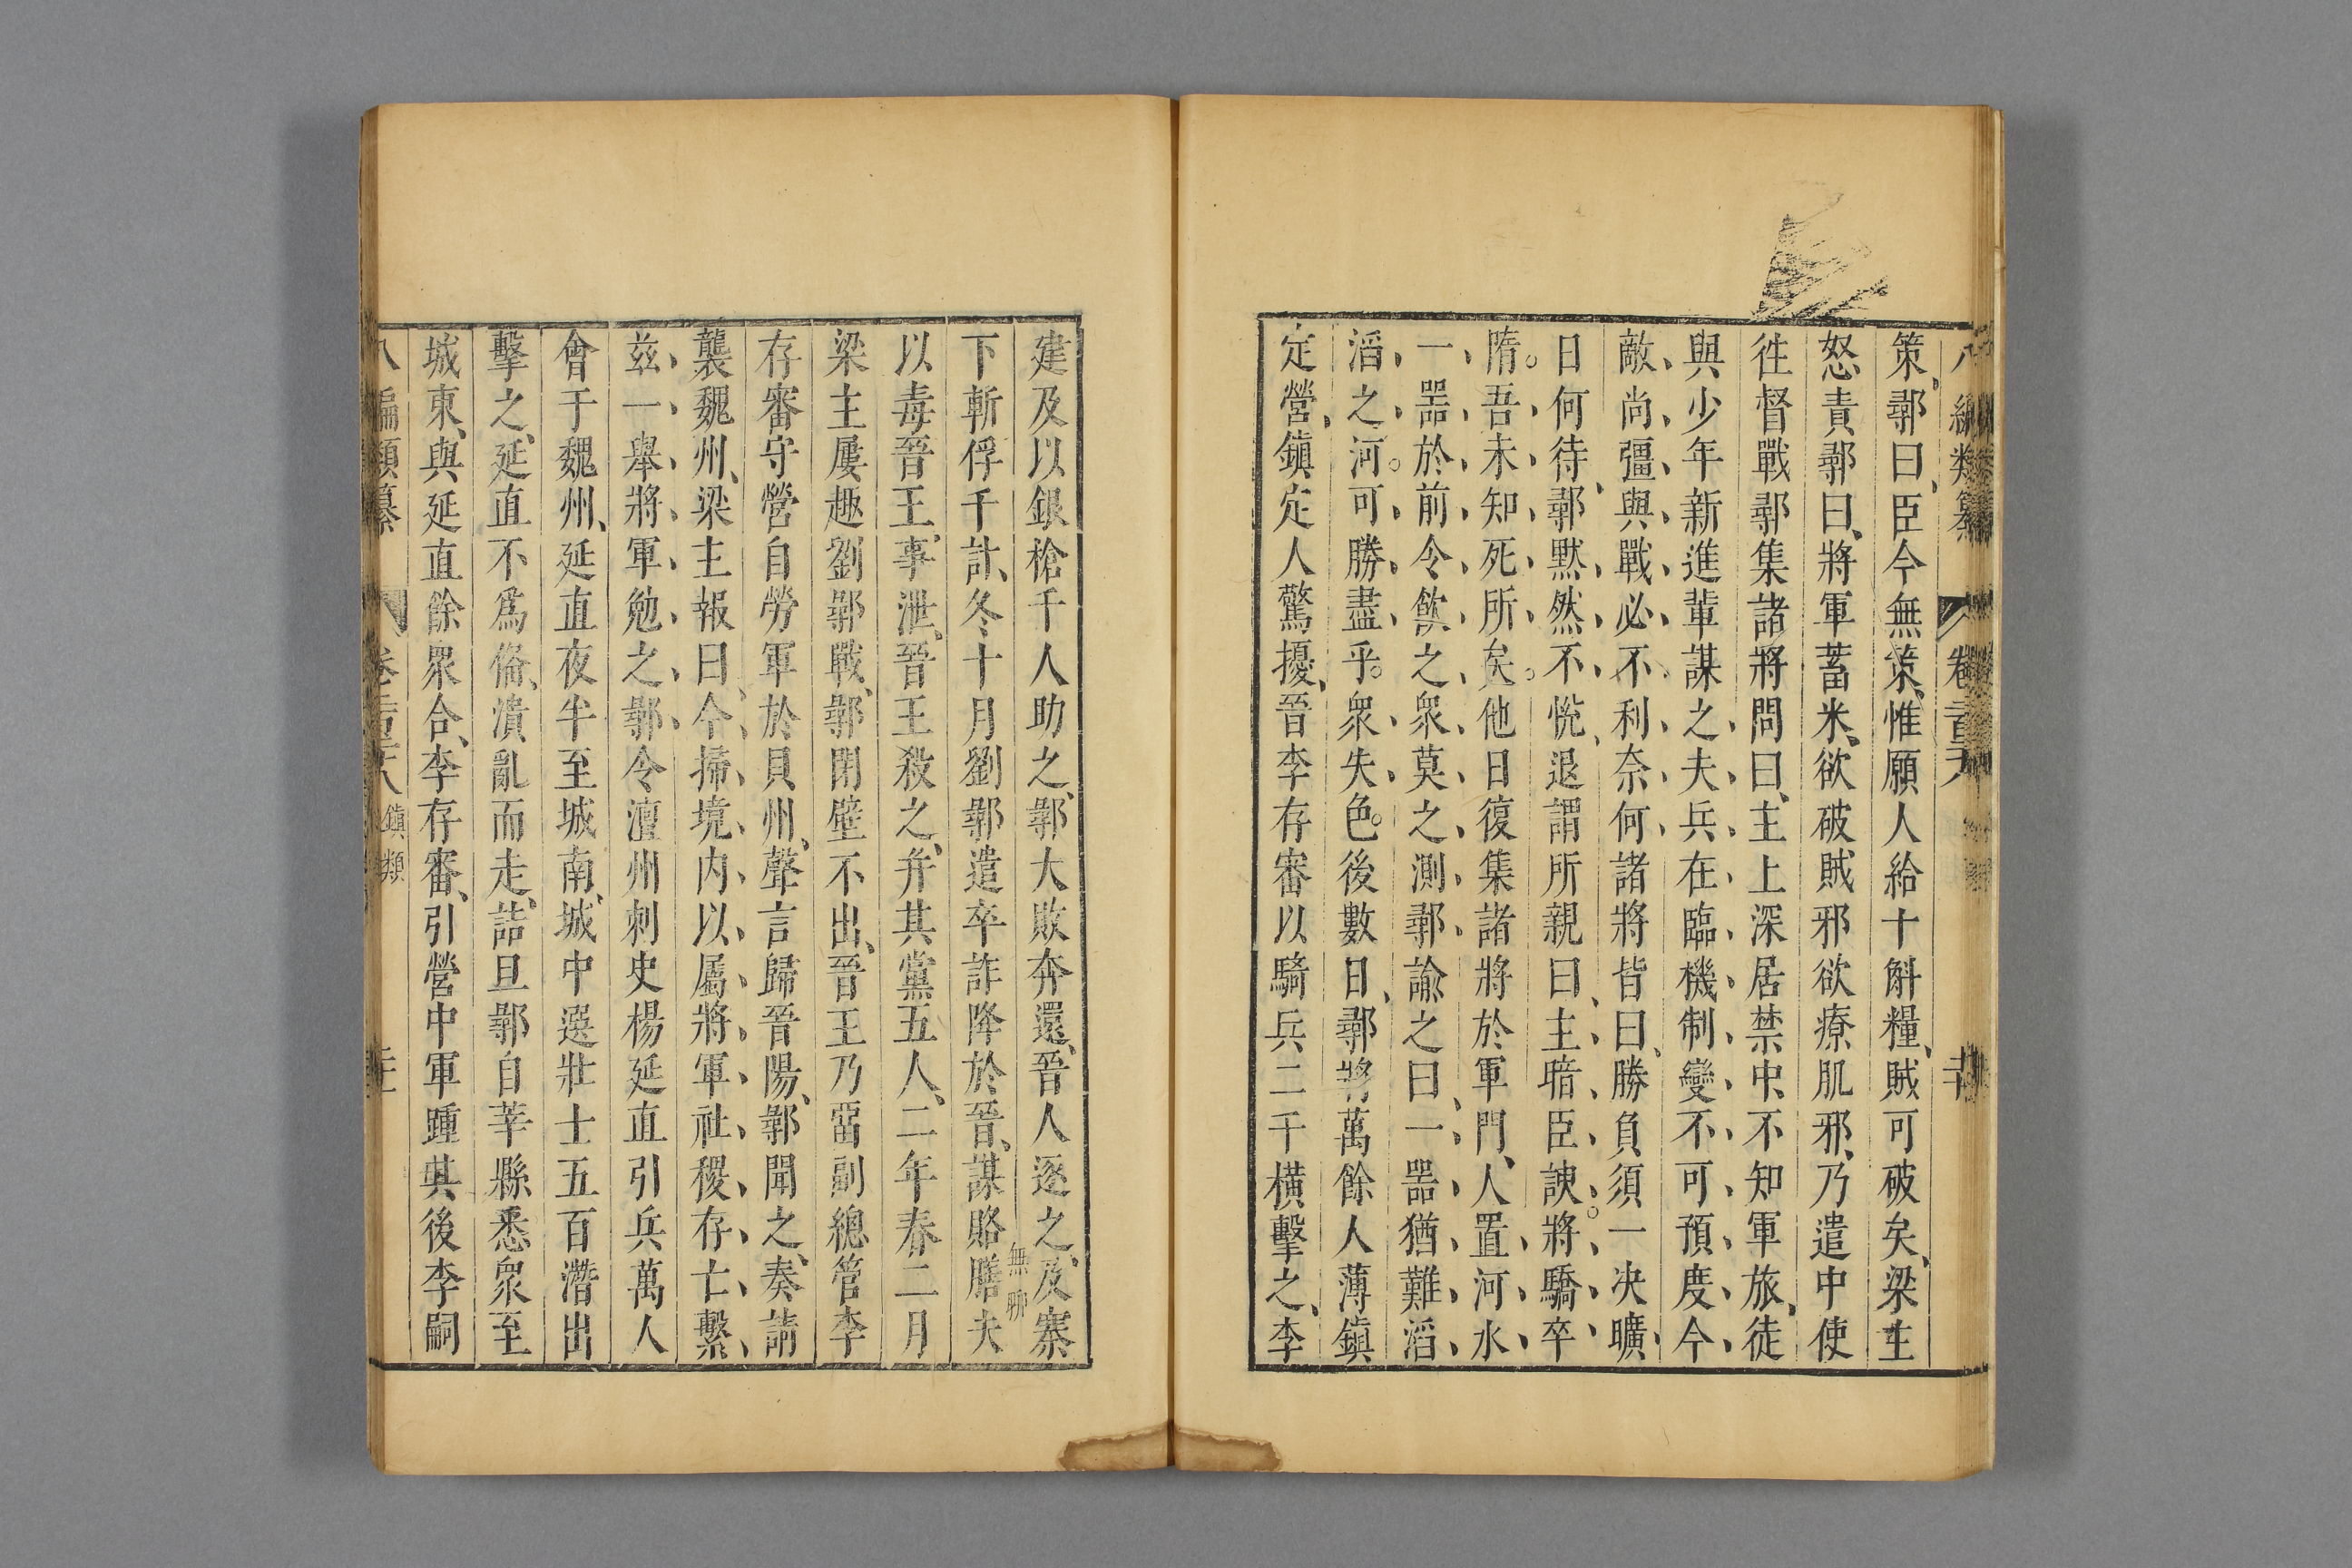 八編類纂 卷 
策鄩曰臣今無策惟願人給十斛糧賊可破矣梁主
怒責鄩曰將軍蓄米欲破賊邪欲療肌邪乃遣中使
徃督戰鄩集諸將問曰主上深居禁中不知軍旅徒
與少年新進輩謀之夫兵在臨機制變不可預度今
敵尚彊與戰必不利奈何諸將皆曰勝負須一决曠
日何待鄩黙然不悅退謂所親曰主暗臣諛將驕卒
隋吾未知死所矣他日復集諸將於軍門人置河水
一噐於前令飲之衆莫之測鄩諭之曰一噐猶難滔
滔之河可勝盡乎衆失色後數日鄩將萬餘人薄鎭
定營鎮定人驚擾晉李存審以騎兵二千横擊之李
建及以銀槍千人助之鄩大敗奔還晉人逐之及寨
下斬俘千計冬十月劉鄩遣卒詐降於晉謀賂膳夫
無聊
以毒晉王事泄晉王殺之并其黨五人二年春二月
梁主屢趣劉鄩戰鄩閉壁不出晉王乃畱副總管李
存審守營自勞軍於貝州聲言歸晉陽鄩聞之奏請
襲魏州梁主報曰今掃境内以屬將軍社稷存亡繫
兹一舉將軍勉之鄩令澶州刺史楊延直引兵萬人
會于魏州延直夜半至城南城中選壯士五百潛出
擊之延直不爲俻潰亂而走詰旦鄩自莘縣悉衆至
城東與延直餘衆合李存審引營中軍踵其後李嗣
八編類纂 鎮類